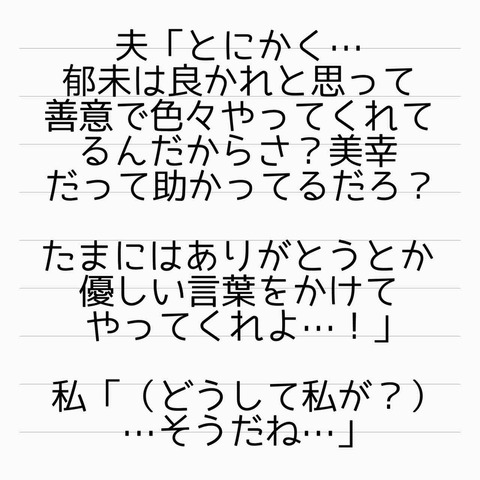 夫「とにかく…
郁未は良かれと思って
善意で色々やってくれて
るんだからさ？美幸
だって助かってるだろ？
たまにはありがとうとか
優しい言葉をかけて
やってくれよ…！」
私「（どうして私が？）
…そうだね…」